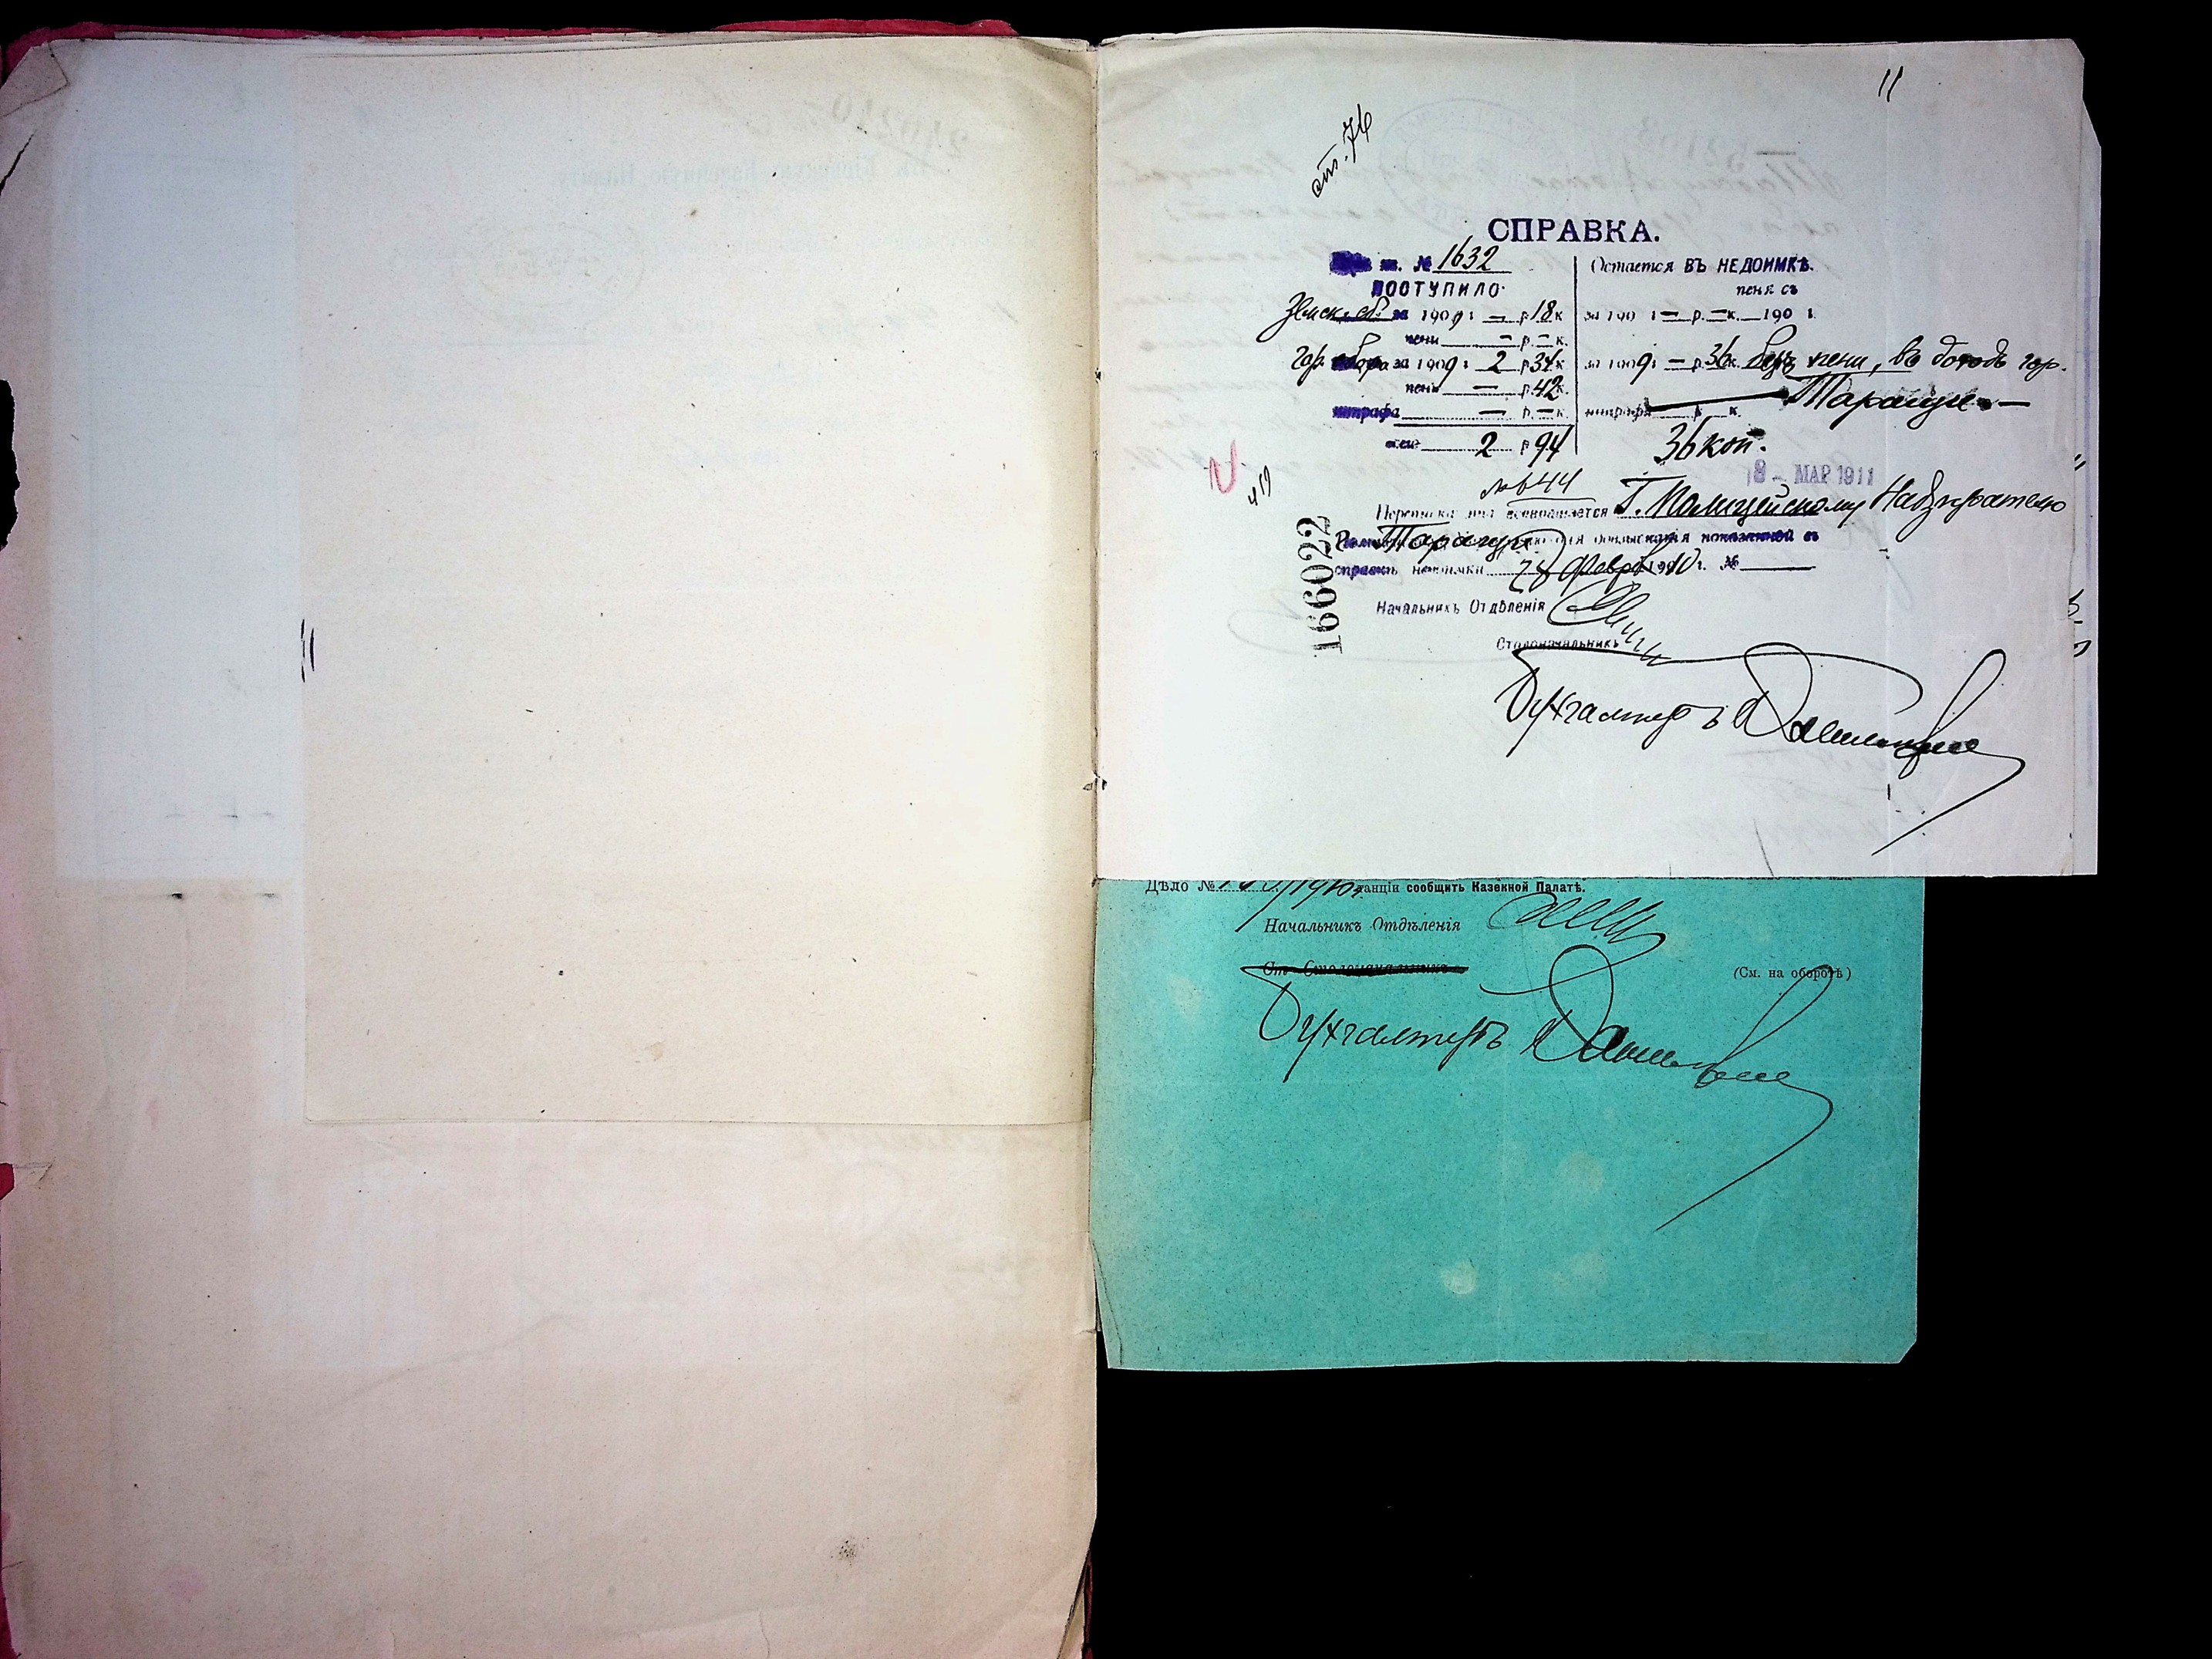 11
ст. 76
СПРАВКА.
ст. № 1632
ПОСТУПИЛО
Земск. сб. за 1909 г — р 18 к
пени — р — к.
Гор. сбора за 1909 г 2 р 34 к
пени — р. 42 к.
штрафа — р. — к.
всего 2 р 94
Остается ВЪ НЕДОИМКѢ.
пеня съ
за 190 г — р. — к. 190 г.
за 1909 г — р 36 к. безъ пени, въ доходъ гор.
штрафа р. к. Таращи —
36 коп.
9 - МАР 1911
№ 644
419
Переписка эта возвращается Г. Полицейскому Надзирателю
Таращи для взысканія показанной въ
справкѣ недоимки 28 февр. 1910 г. №
166022
Начальникъ Отдѣленія
Столоначальникъ
Бухгалтеръ
Дѣло № /1910 г. танціи сообщить Казенной Палатѣ.
Начальникъ Отдѣленія
Ст Столоначальникъ
(См. на оборотѣ)
Бухгалтеръ